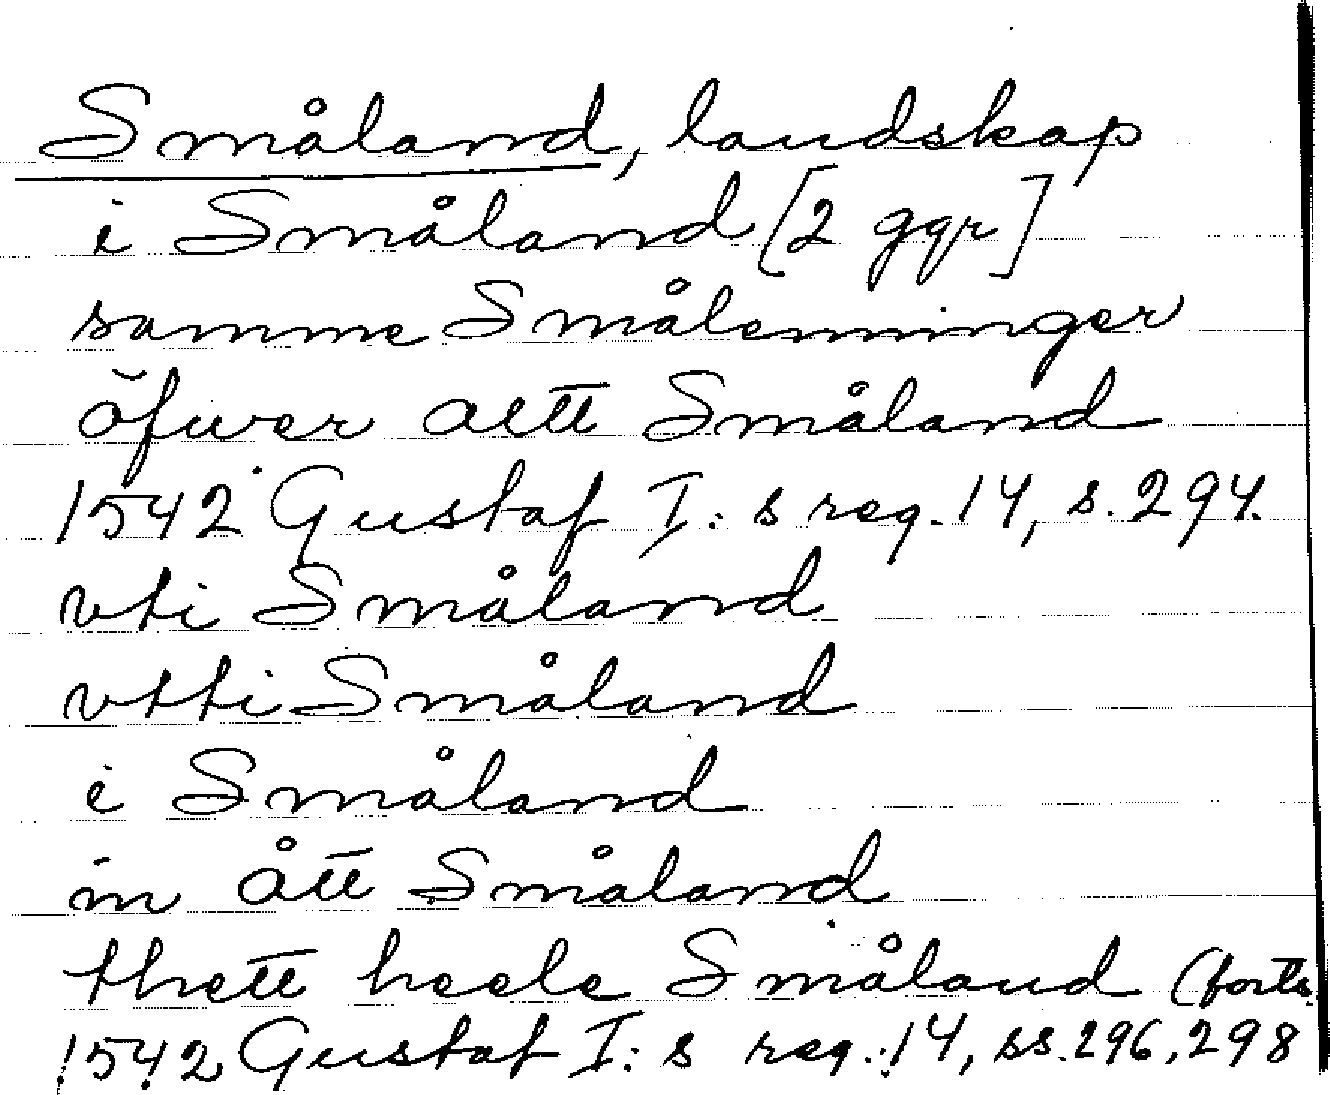 Småland, landskap
i Småland [2 ggr]
samme Smålenninger
öfwer aett Småland
1542 Gustaf I:s reg. 14, s. 294.
vti Småland
vtti Småland
i Småland
in ått Småland
thett heele Småland (forts.
1542 Gustaf I:s reg. 14, ss. 296, 298